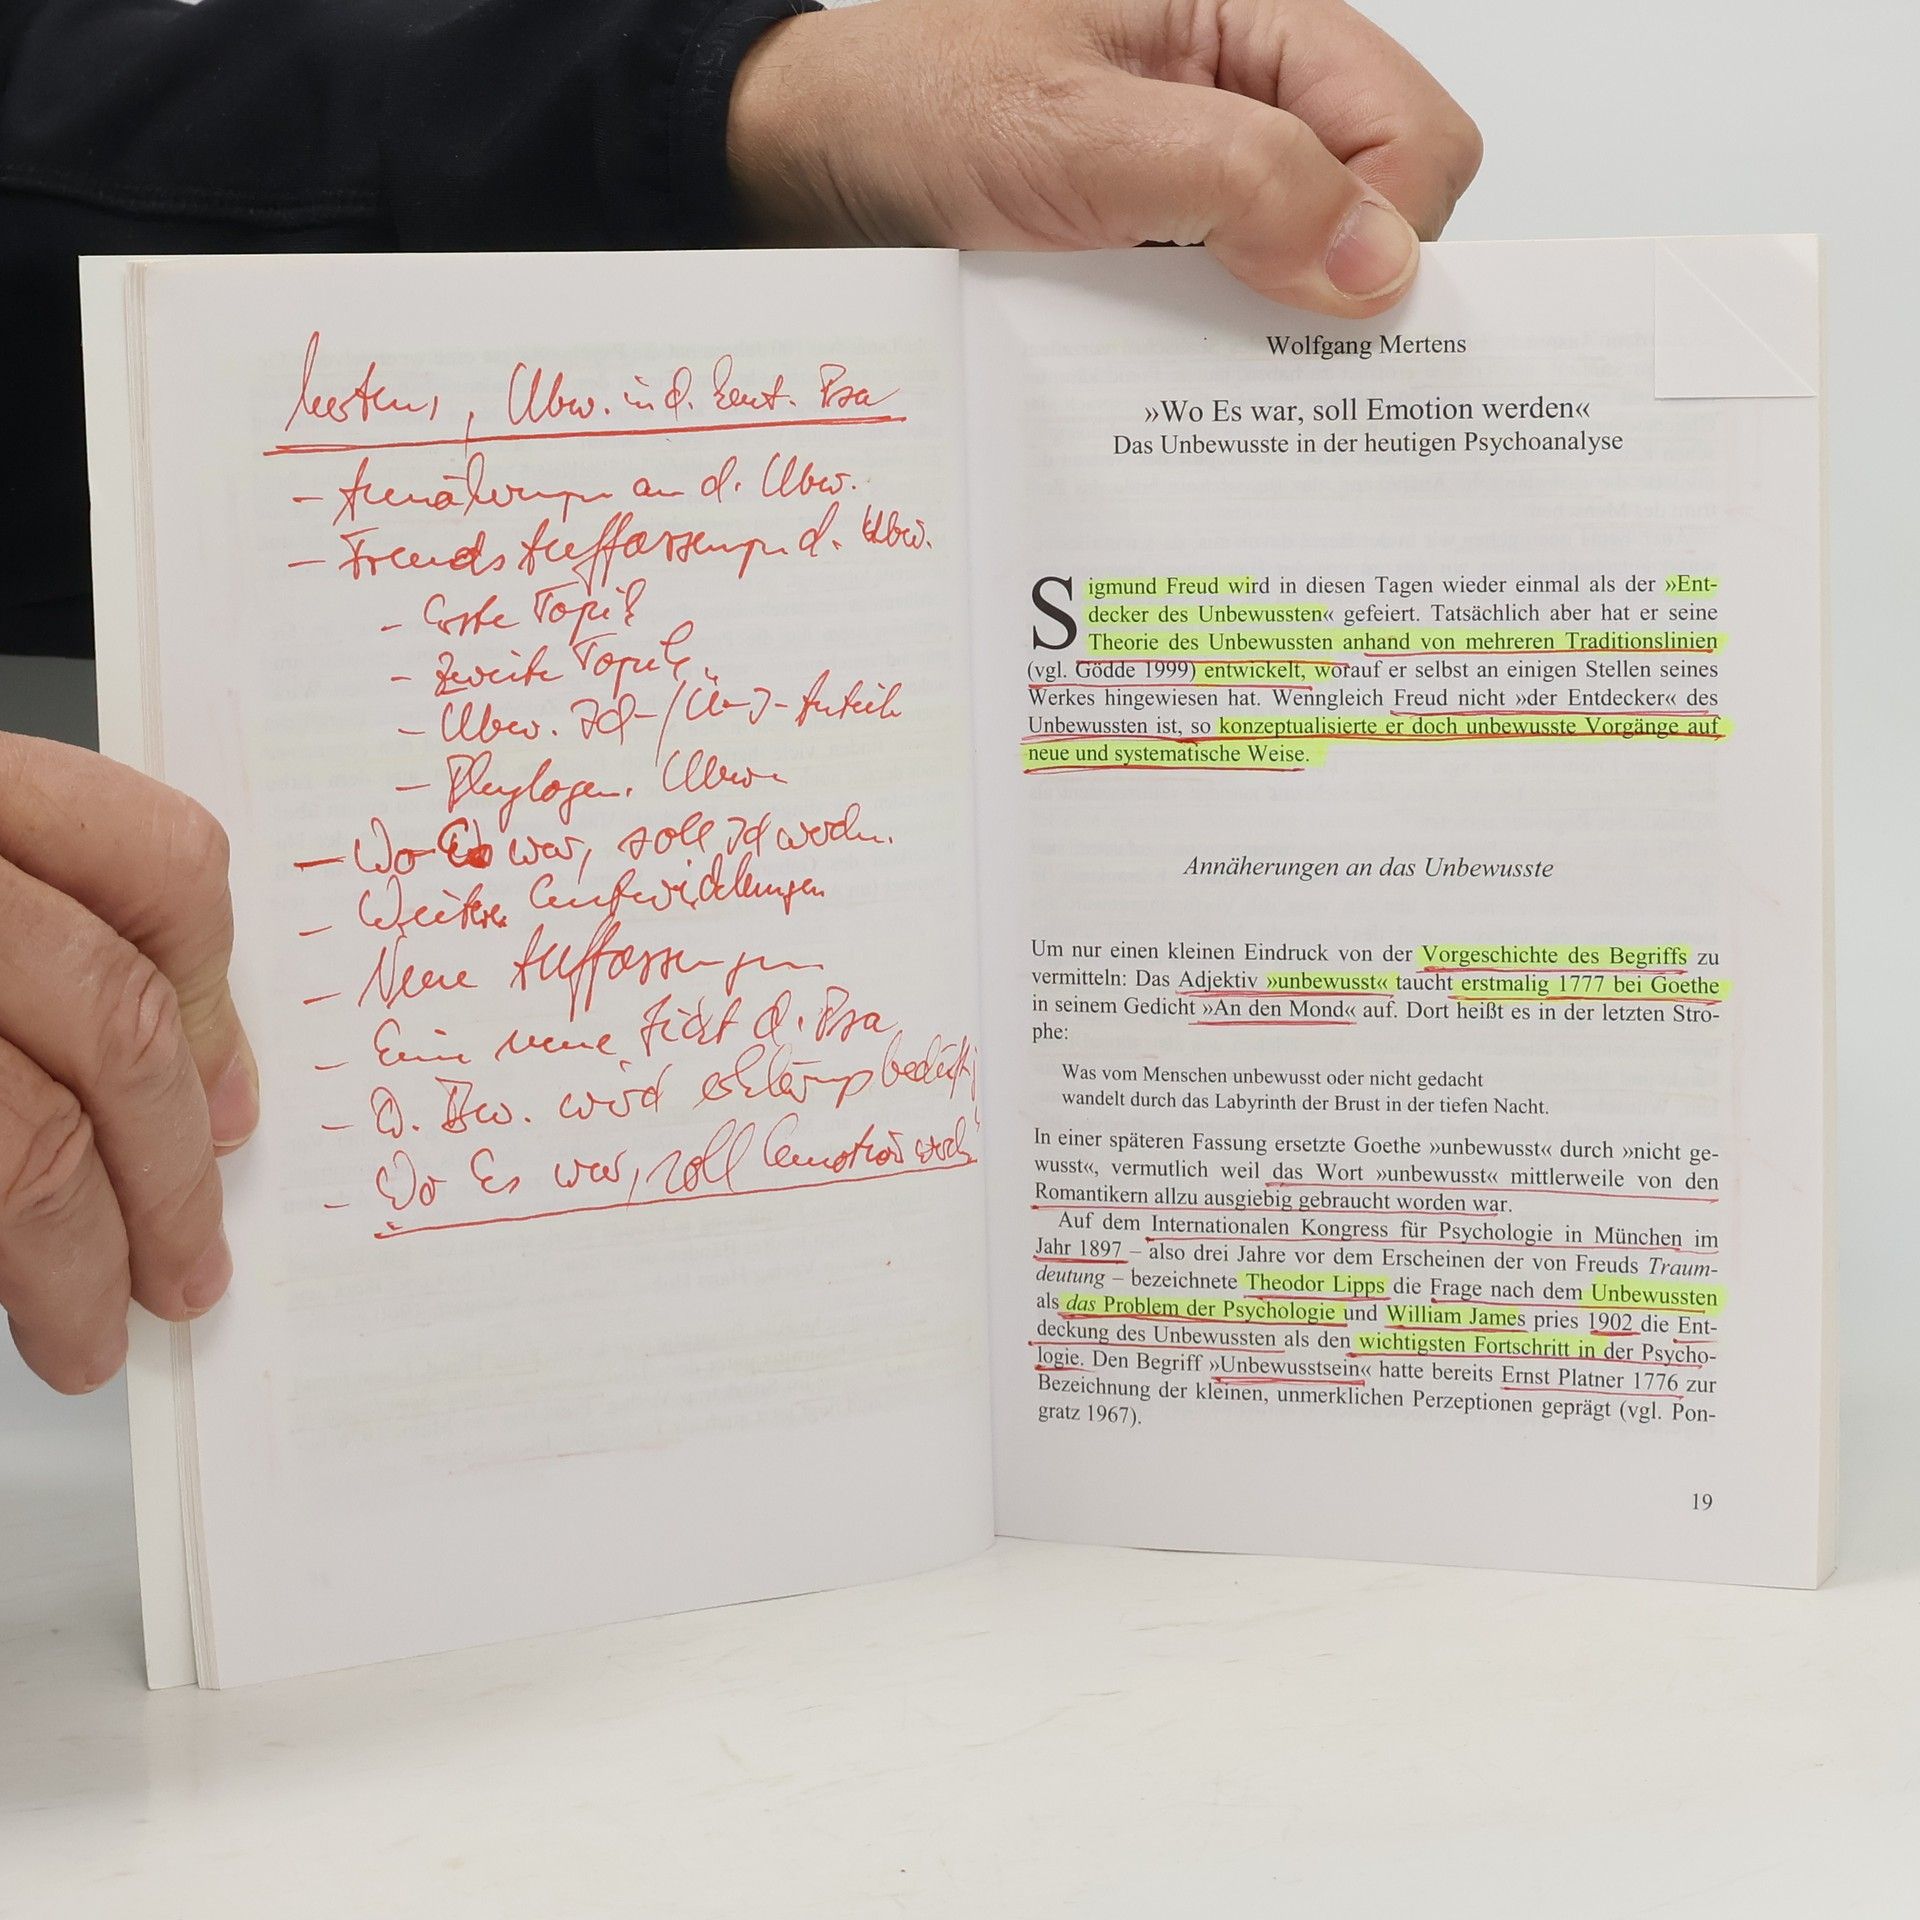 Mertens, Ubw. in d. heut. Psa
- Annäherungen an d. Ubw.
- Freuds Auffassungen d. Ubw.
- Erste Topik
- Zweite Topik
- Ubw. Ich-/Ü-I-Anteile
- Phylogen. Ubw.
- Wo Es war, soll Ich werden.
- Weitere Entwicklungen
- Neue Auffassungen
- Eine neue Sicht d. Psa
- D. Bw. wird erklärungsbedürftig
- Wo Es war, soll Emotion werden
Wolfgang Mertens
»Wo Es war, soll Emotion werden«
Das Unbewusste in der heutigen Psychoanalyse
Sigmund Freud wird in diesen Tagen wieder einmal als der »Ent-
decker des Unbewussten« gefeiert. Tatsächlich aber hat er seine
Theorie des Unbewussten anhand von mehreren Traditionslinien
(vgl. Gödde 1999) entwickelt, worauf er selbst an einigen Stellen seines
Werkes hingewiesen hat. Wenngleich Freud nicht »der Entdecker« des
Unbewussten ist, so konzeptualisierte er doch unbewusste Vorgänge auf
neue und systematische Weise.
Annäherungen an das Unbewusste
Um nur einen kleinen Eindruck von der Vorgeschichte des Begriffs zu
vermitteln: Das Adjektiv »unbewusst« taucht erstmalig 1777 bei Goethe
in seinem Gedicht »An den Mond« auf. Dort heißt es in der letzten Stro-
phe:
Was vom Menschen unbewusst oder nicht gedacht
wandelt durch das Labyrinth der Brust in der tiefen Nacht.
In einer späteren Fassung ersetzte Goethe »unbewusst« durch »nicht ge-
wusst«, vermutlich weil das Wort »unbewusst« mittlerweile von den
Romantikern allzu ausgiebig gebraucht worden war.
Auf dem Internationalen Kongress für Psychologie in München im
Jahr 1897 – also drei Jahre vor dem Erscheinen der von Freuds Traum-
deutung – bezeichnete Theodor Lipps die Frage nach dem Unbewussten
als das Problem der Psychologie und William James pries 1902 die Ent-
deckung des Unbewussten als den wichtigsten Fortschritt in der Psycho-
logie. Den Begriff »Unbewusstsein« hatte bereits Ernst Platner 1776 zur
Bezeichnung der kleinen, unmerklichen Perzeptionen geprägt (vgl. Pon-
gratz 1967).
19